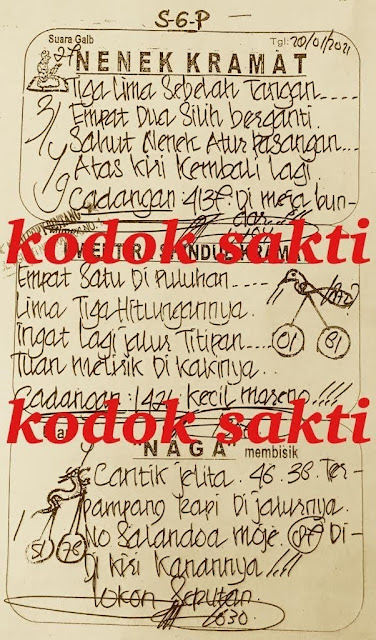 S-6-P
Suara Gaib
Tgl: 20/01/2021
NENEK KRAMAT
Tiga Lima Sebelah Tangan....
Empat Dua Silih berganti.
Sahut Nenek Atur pasangan...
Atas Kiri Kembali Lagi
Cadangan : 4137. Di meja bun-
dar
kodok sakti
Empat Satu Di puluhan
Lima Tiga Hitungannya.
Ingat Lagi jalur Titipan....
01 81
Tuan melirik Di Kakinya..
Cadangan : 1421 Kecil
kodok sakti
"NAGA" membisik
Cantik jelita. 46. 36. Ter-
pampang Rapi Di jalurnya.
51 76
No Di-
Di kiri Kanannya !!!!
1630.